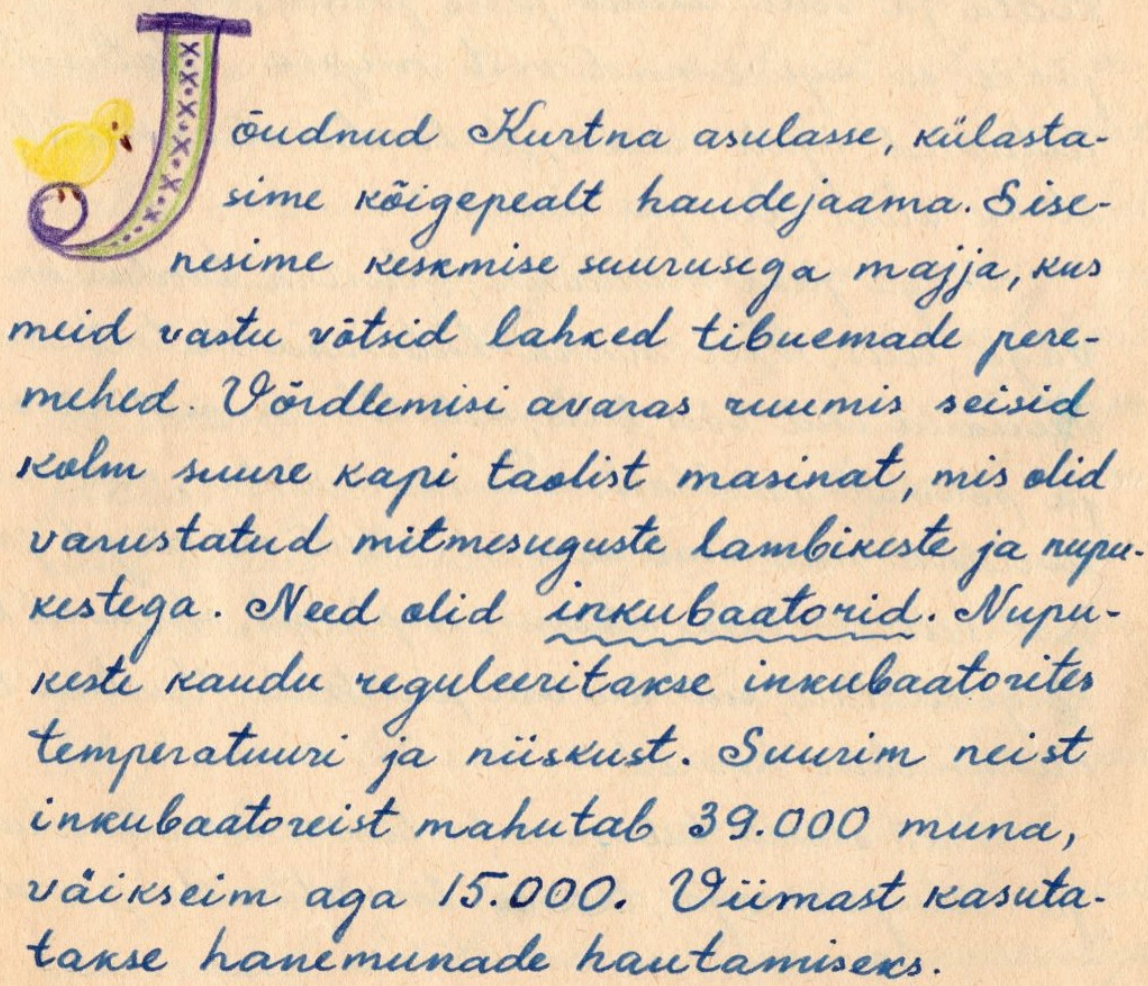 Jõudnud Kurtna asulasse, külasta-
sime kõigepealt haudejaama. Sise-
nesime keskmise suurusega majja, kus
meid vastu võtsid lahked tibuemade pere-
mehed. Võrdlemisi avaras ruumis seisid
kolm suure kapi taolist masinat, mis olid
varustatud mitmesuguste lambikeste ja nupu-
kestega. Need olid inkubaatorid. Nupu-
keste kaudu reguleeritakse inkubaatorites
temperatuuri ja niiskust. Suurim neist
inkubaatoreist mahutab 39.000 muna,
väikseim aga 15.000. Viimast kasuta-
takse hanemunade hautamiseks.